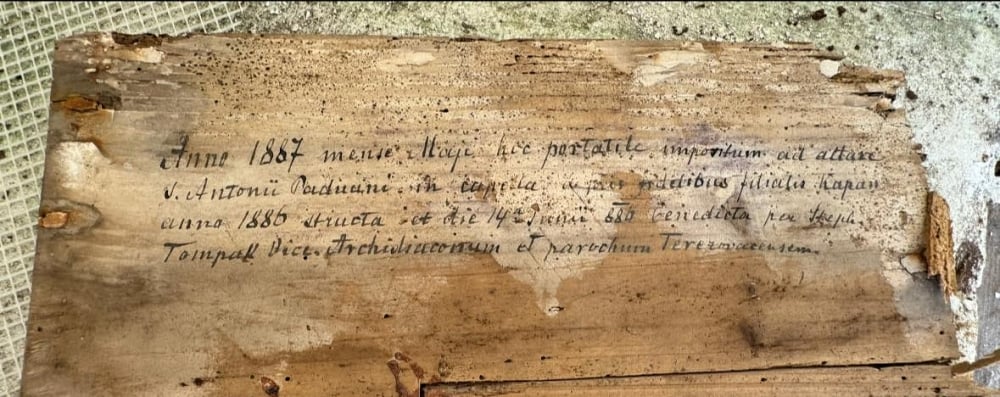 Anno 1887 mense Maji hoc portatile impositum ad altare
S. Antonii Paduani in capella a piis fidelibus filialis Kapan
anno 1886 structa et die 14ª Junii 886 benedicta per Steph.
Tompak Vice-Archidiaconum et parochum Terezovacensem.